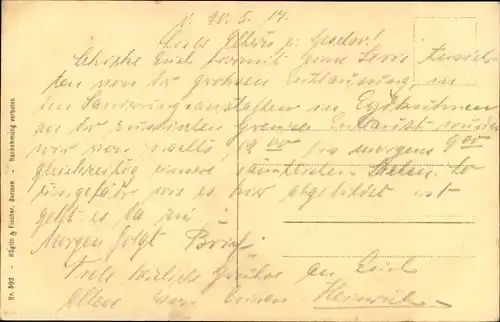 20. 5. 17.
Liebe Eltern u. Geschw.!
Schicke Euch hiermit eine Serie Ansich-
ten von der grossen Entlausung, in
den Sanierungsanstalten in Eydtkuhnen
an der russischen Grenze. Entlaust wurden
wir von nachts 12 00 bis morgens 9 00
gleichzeitig unsere sämtlichen Sachen. So
ungefähr wie es hier abgebildet ist
geht es da zu
Morgen folgt Brief.
Viele herzliche Grüße an Euch
allen von Euren Heinrich
Nr. 502 - Röglin & Fischer, Barmen - Nachahmung verboten